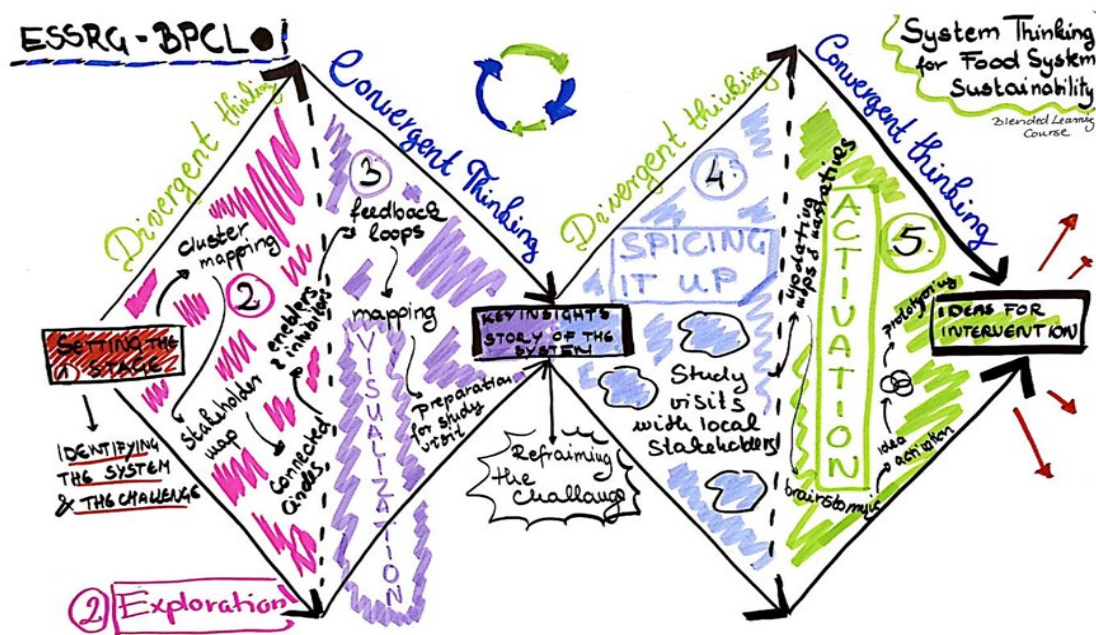 ESSRG-BPCL●!
System Thinking
for Food System
Sustainability
Blended Learning
Course
Divergent thinking
Convergent Thinking
Divergent thinking
Convergent thinking
SETTING THE
① STAGE
IDENTIFYING
THE SYSTEM
& THE CHALLENGE
②
cluster
mapping
Stakeholder
map
connected
circles,
eneblers
& inhibitors
② Exploration
③
feedback
loops
mapping
preparation
for study
visit
VISUALIZATION
KEY INSIGHTS
STORY OF THE
SYSTEM
Refraiming
the
challange
④
SPICING
IT UP
Study
visits
with local
Stakeholders
updating
maps & narratives
ACTIVATION
⑤
brainstorming
idea
prototyping
IDEAS FOR
INTERVENTION